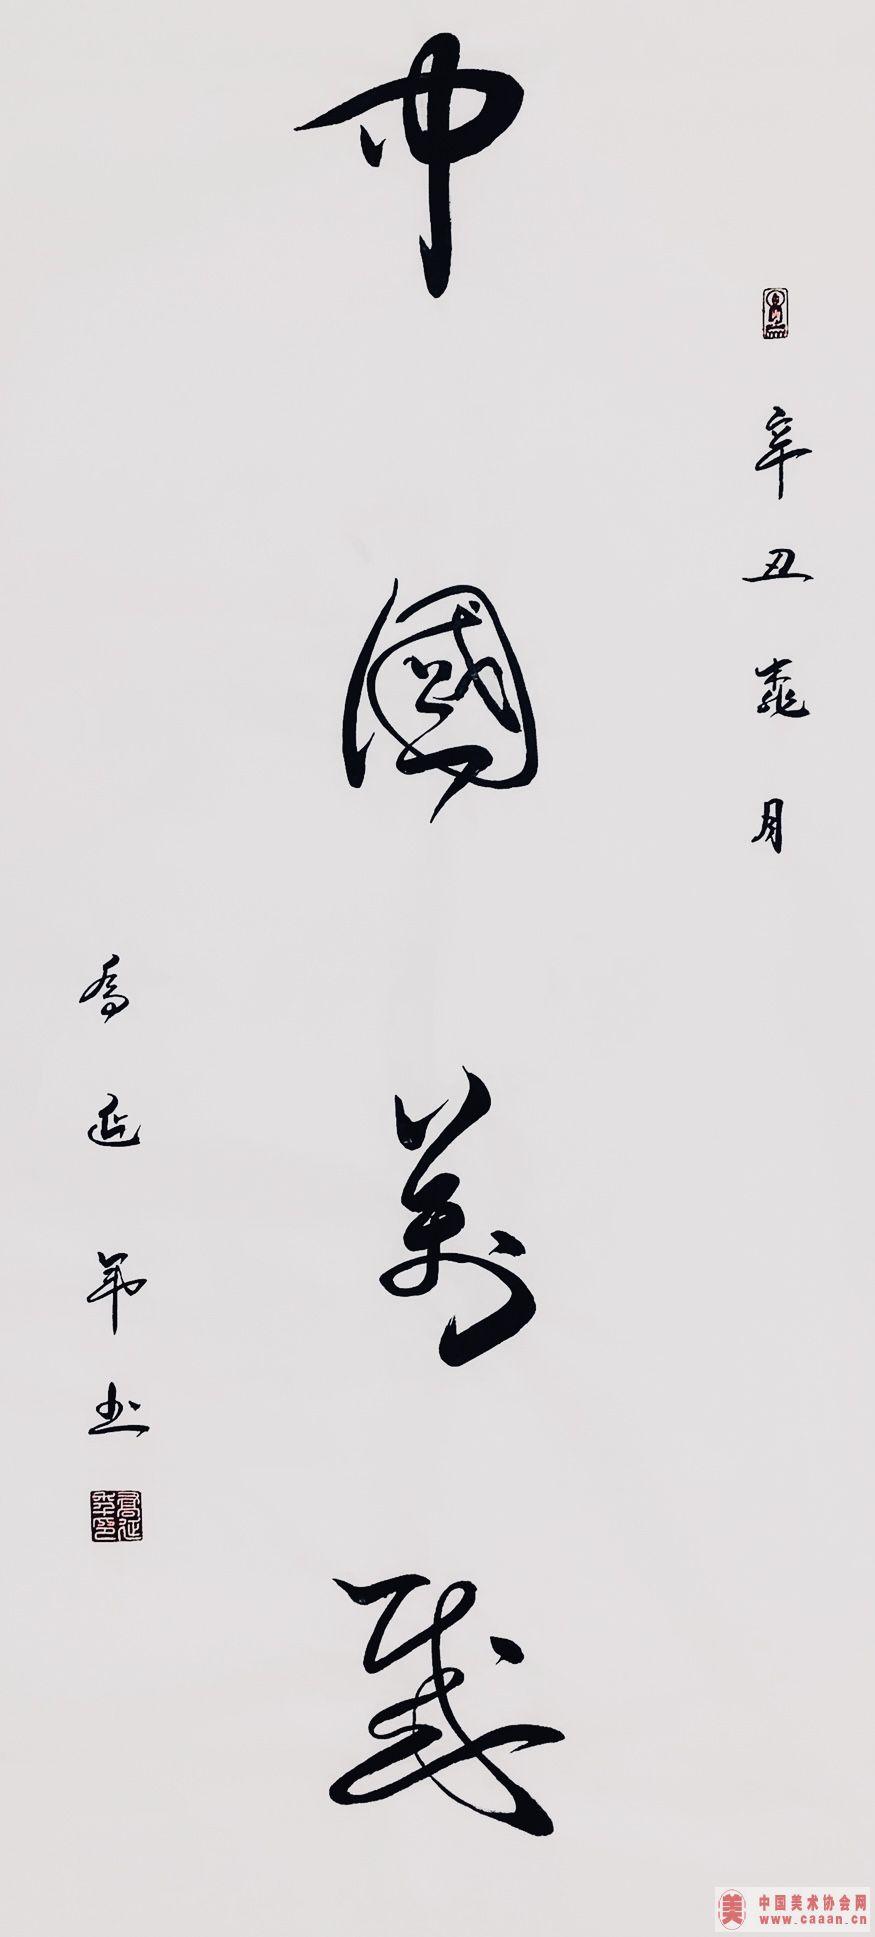 中國萬歲
辛丑桃月
喬延书
中国美术协会网
www.caaan.cn